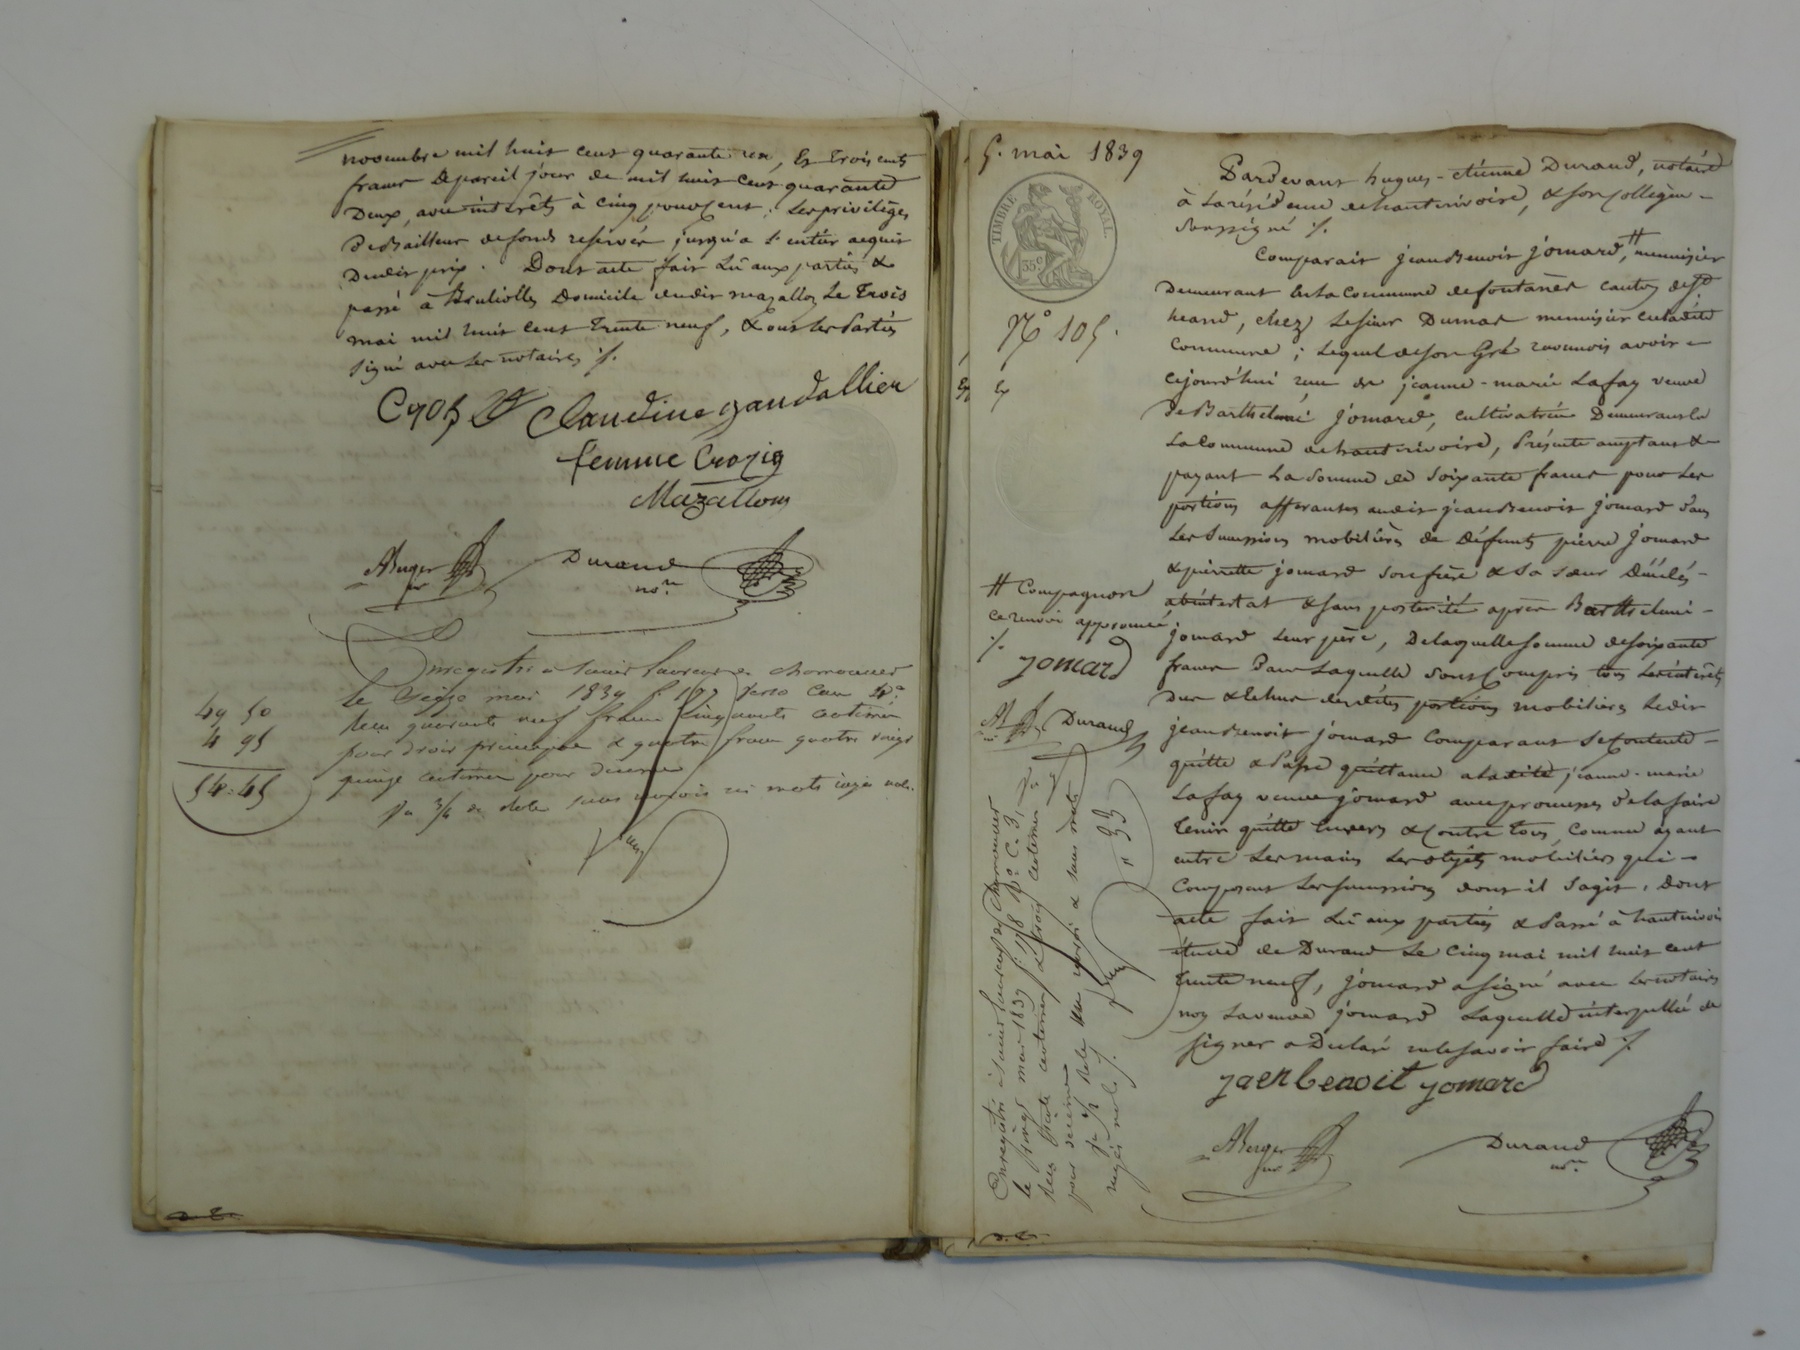 novembre mil huit cent quarante un, Et trois cents
francs de pareil jour de mil huit cent quarante
Deux, avec intérêts à cinq pour cent; les privilèges
de Bailleur de fonds reservés jusqu'a l'entier acquit
Dudit prix. Dont acte fait Lu aux parties &
passé à Brulioles Domicile dudit mazallon Le Trois
mai mil huit cent Trente neuf, & ont les Parties
signé avec les notaires ./.
Claudine gaudallier
femme Crozie
Mazallon
ABerger
nre
Durand
nore
Enregistré à saint Laurent de chamousset
le seize mai 1839 fo 197 verso Case 4e
Reçu quarante neuf francs cinquante centimes
pour droit principal & quatre francs quatre vingt
quinze centimes pour decime
49 50
4 95
54=45
5. mai 1839
TIMBRE ROYAL.
35c
No 105.
Pardevant hugues-etienne Durand, notaire
à la résidence de hauterivoire, & son Collègue
soussigné ./.
Comparait jean Benoit jomard, # menuisier
Demeurant en la Commune de fontanès canton de St
heand, chez Le sieur Dumas menuisier en ladite
commune ; Lequel de son Gré reconnois avoir
cejourd'hui reçu de jeanne-marie Lafay veuve
de Barthelmi jomard, cultivatrice Demeurant en
La Commune de hauterivoire, Présente acceptant &
payant La Somme de Soixante francs pour Les
portions afferantes audit jean Benoit jomard dans
Les Successions mobilières de Défunts pierre jomard
& pierrette jomard son frère & sa sœur Décédés
abintestat & sans posterité après Barthelmi
jomard Leur père, De laquelle somme de soixante
francs Dans Laquelle sont Compris tous les intérêts
dus & Echus desdites portions mobilières Ledit
jean Benoit jomard Comparant se Contente
quitte & Passe quittance a Ladite jeanne-marie
Lafay veuve jomard avec promesse de la faire
Tenir quitte Envers & Contre tous, Comme ayant
entre Les mains Les objets mobiliers qui
Composent Les Successions dont il sagit. Dont
acte fait Lu aux parties & Passé à hauterivoire
étude de Durand Le Cinq mai mil huit cent
Trente neuf, jomard a signé avec Les notaires
non La veuve jomard Laquelle interpellée de
signer a Declaré ne le savoir faire ./.
jaen benoit jomard
ABerger
nre
Durand
nore
# Compagnon
ce renvoi approuvé
./.
jomard
Durand
Enregistré à saint Laurent de Chamousset
le seize mai 1839 fo 198 Ro C. 3,
Reçu trente centimes & trois centimes
pour decime
33